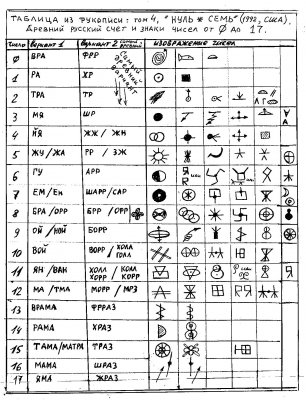 ТАБЛИЦА ИЗ РУКОПИСИ: ТОМ 4, "НУЛЬ * СЕМЬ" (1992, США).
Древний русский счет и знаки чисел от 0 до 17.
число ВАРИАНТ 1 ВАРИАНТ 2 ИЗОБРАЖЕНИЕ ЧИСЕЛ
0 ВРА ФРР
1 РА ХР
2 ТРА ТР
3 МЯ ШР
4 ЖЖ / ЖН
5 ЖУ/ЖА ГР / ЗЖ
6 ГУ АРР
7 ЕМ/ЕН ШАРР/САР
8 ВРА/ОРР БРР / ОРР
9 ОЙ/НОЙ БОРР
10 ВОЙ ВОРР / ХОЛЛ ГОЛЛ
11 ЯН/ВАН ХОЛЛ ХОРР / КОЛЛ КОРР
12 МА/ТМА МОРР / МРЗ
13 ВРАМА ФРРАЗ
14 РАМА ХРАЗ
15 ТАМА/МАТРА ТРАЗ
16 МАМА ШРАЗ
17 ЯМА ЖРАЗ